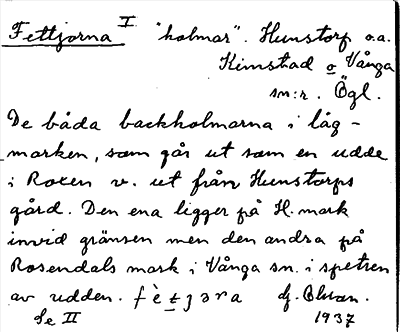 Fettjorna I "holmar". Hunstorp o.a.
Kimstad o Vånga
sn:r. Ögl.
De båda backholmarna i låg-
marken, som går ut som en udde
i Roxen v. ut från Hunstorps
gård. Den ena ligger på H. mark
invid gränsen men den andra på
Rosendals mark i Vånga sn. i spetsen
av udden. fètjəra
Se II 1937